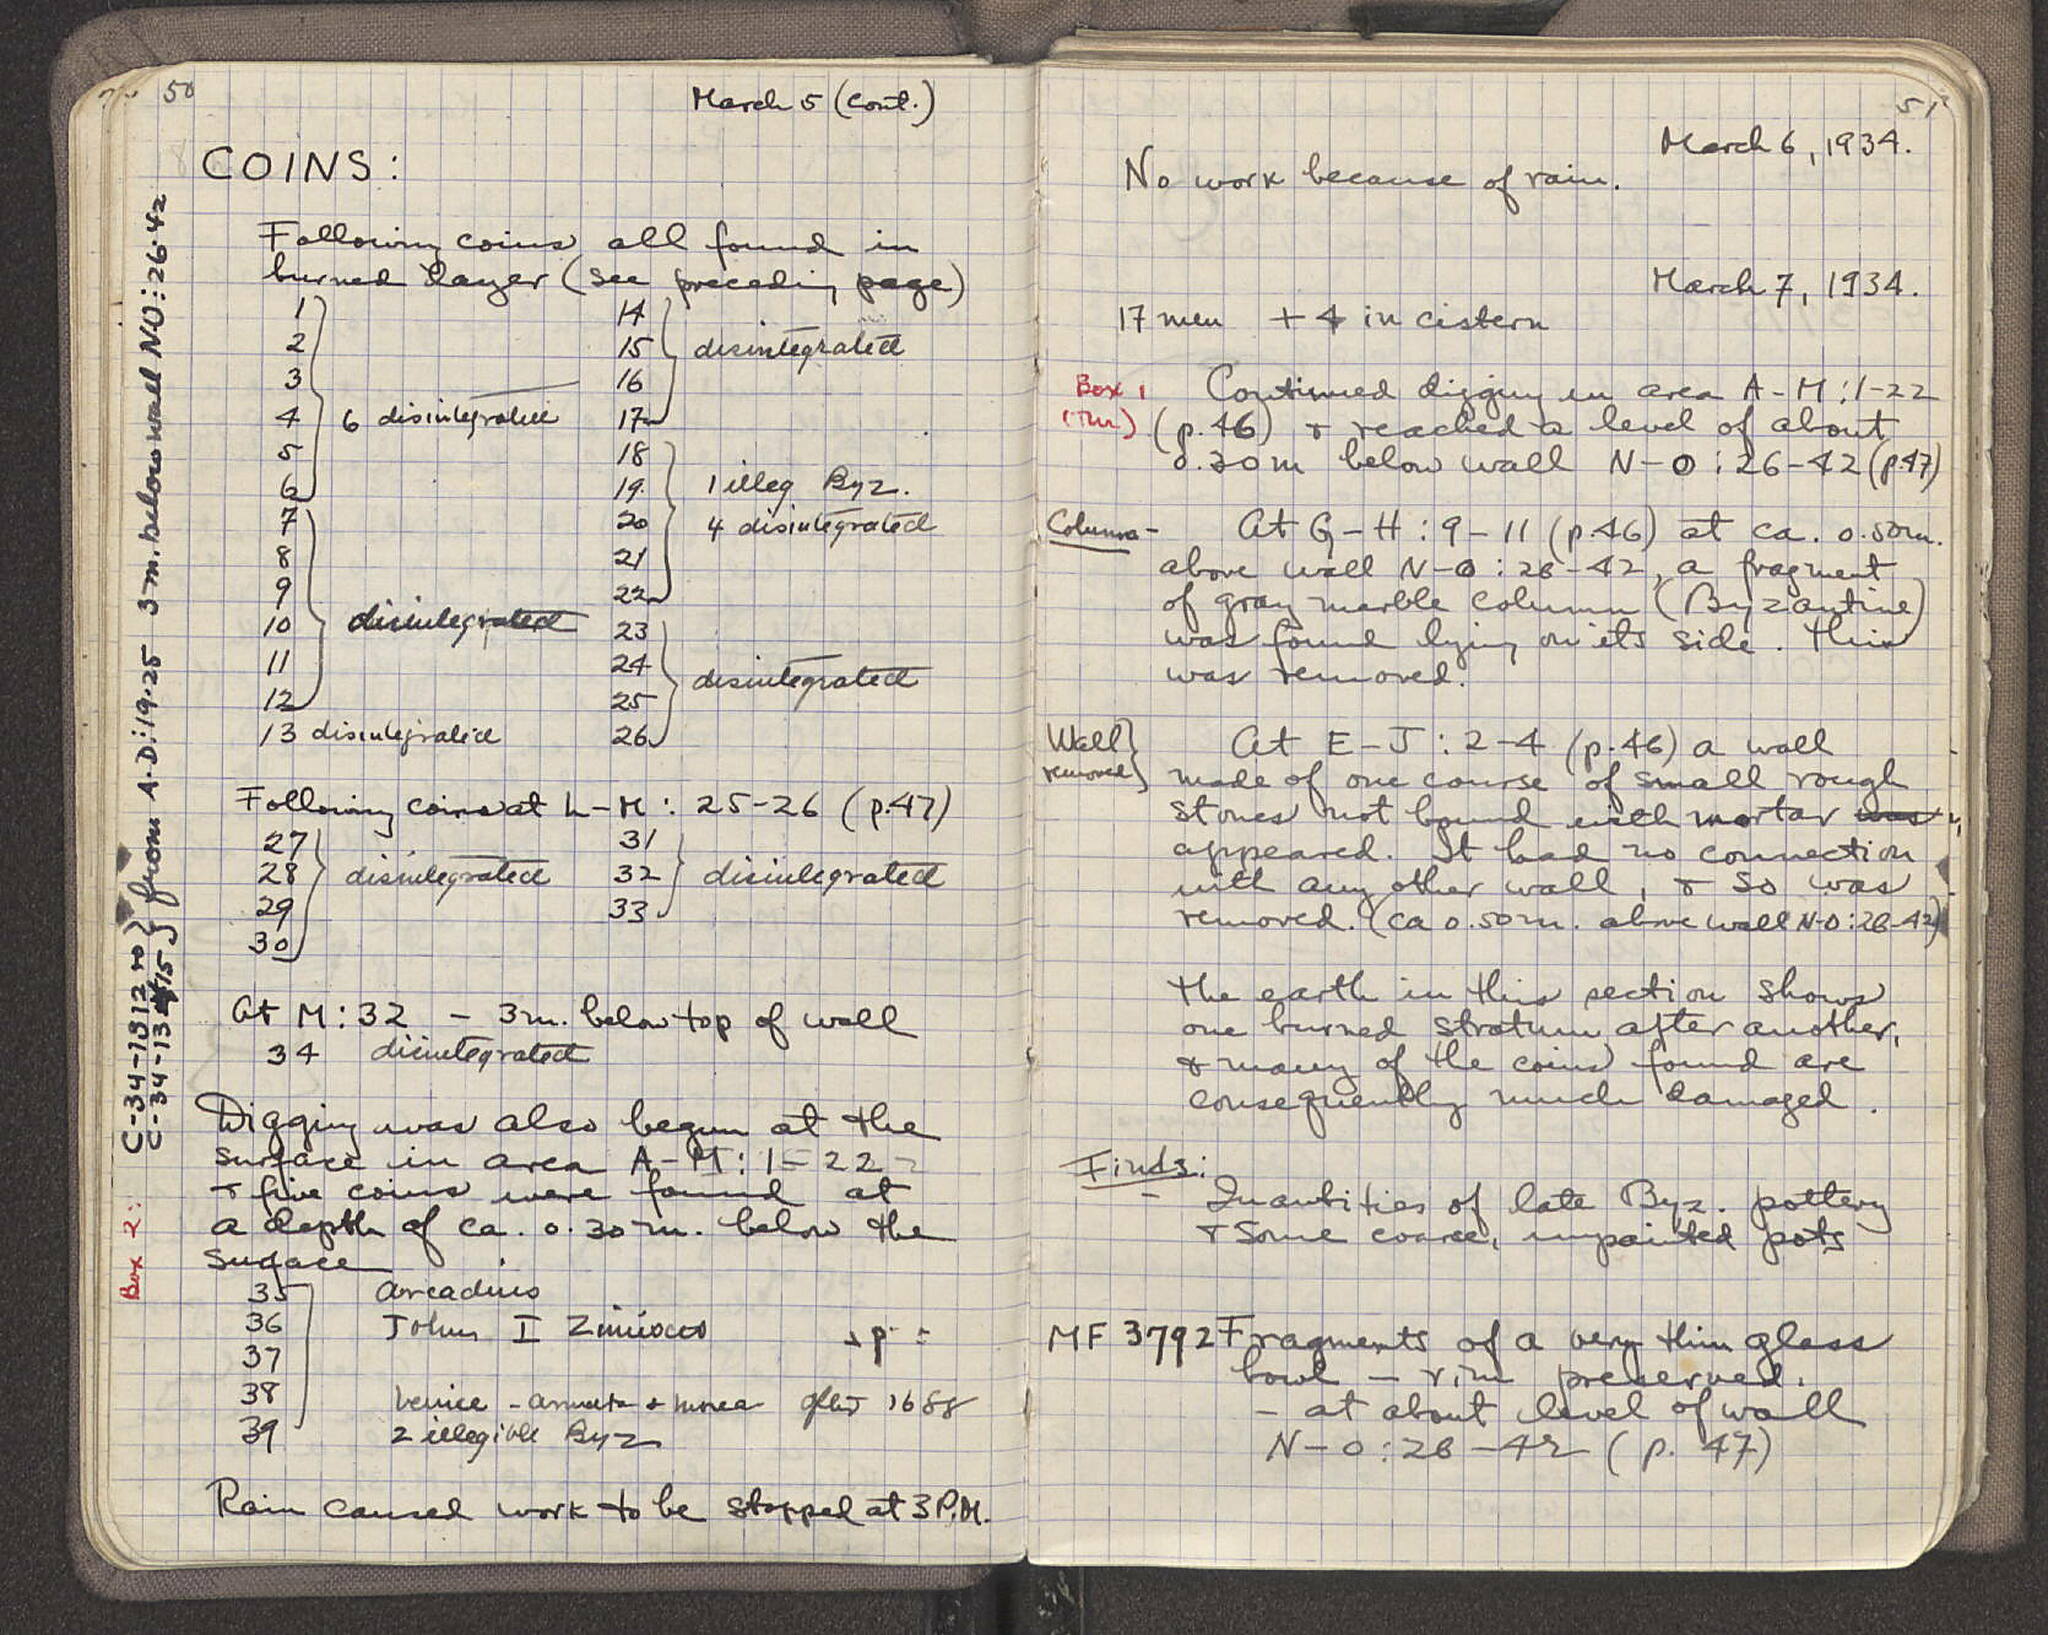 50
March 5 (cont.)
COINS:
Following coins all found in
burned layer (see preceding page)
1
2
3
4 6 disintegrated
5
6
7
8
9
10 disintegrated
11
12
13 disintegrated
14
15 disintegrated
16
17
18
19. 1 illeg Byz.
20 4 disintegrated
21
22
23
24 disintegrated
25
26
Following coins at L-M: 25-26 (p.47)
27
28 disintegrated
29
30
31
32 disintegrated
33
At M:32 - 3m. below top of wall
34 disintegrated
Digging was also begun at the
surface in area A-M:1-22
& five coins were found at
a depth of ca. 0.30m. below the
surface
35 Arcadius
36 John I Zimisces
37
38 Venice - armata & morea after 1688
39 2 illegible Byz
Rain caused work to be stopped at 3 P.M.
C-34-1312 to
C-34-1315 } from A-D:19-25 3m. below wall NO:26-42
Box 2:
51
March 6, 1934.
No work because of rain.
March 7, 1934.
17 men + 4 in cistern
Box 1 Continued digging in area A-M:1-22
(p.46) & reached a level of about
0.30m below wall N-O:26-42 (p.47)
Column- At G-H:9-11 (p.46) at ca. 0.50m.
above wall N-O:26-42, a fragment
of gray marble column (Byzantine)
was found lying on its side. This
was removed.
Wall At E-J:2-4 (p.46) a wall
removed made of one course of small rough
stones not bound with mortar was
appeared. It had no connection
with any other wall, & so was
removed. (ca 0.50m. above wall N-O:26-42)
The earth in this section shows
one burned stratum after another,
& many of the coins found are
consequently much damaged.
Finds:
- Quantities of late Byz. pottery
& some coarse, unpainted pots
MF 3792 Fragments of a very thin glass
bowl - rim preserved.
- at about level of wall
N-O:26-42 (p. 47)